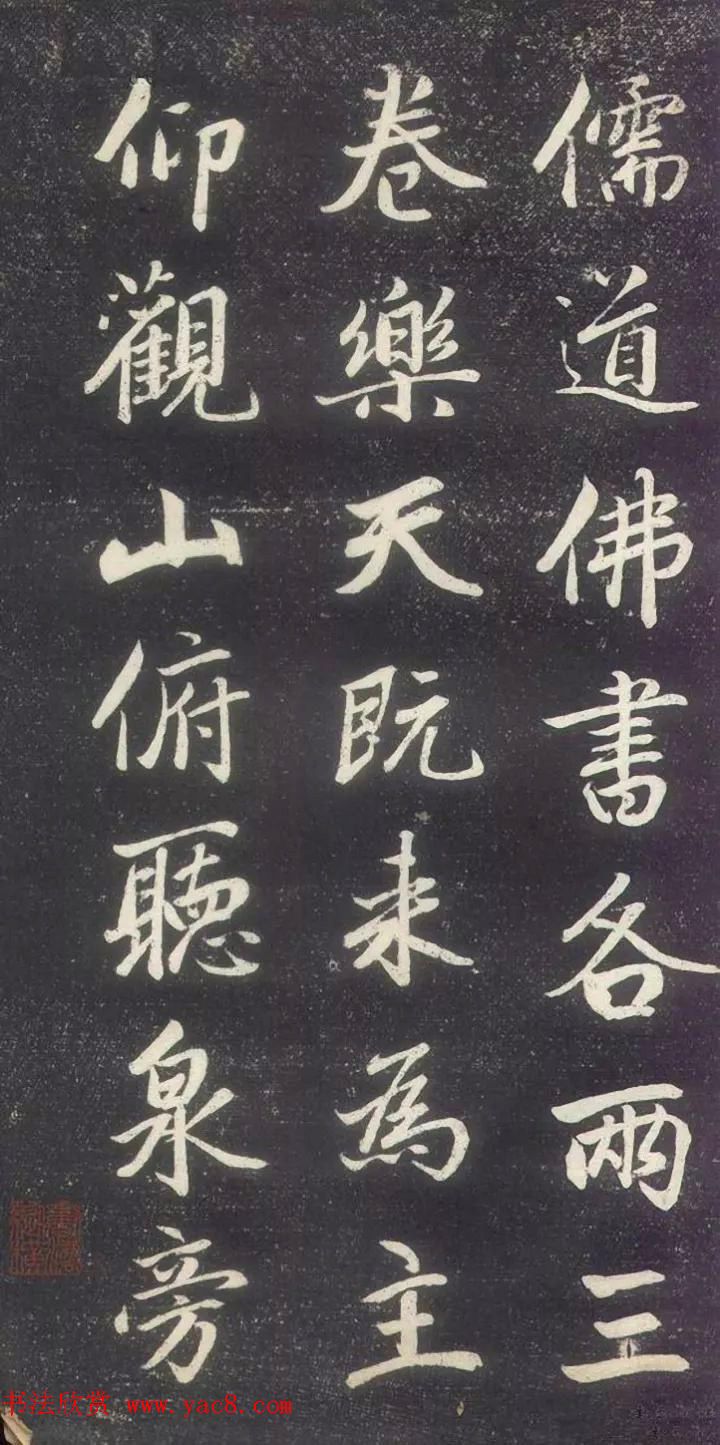 儒道佛書各兩三
卷樂天既来為主
仰觀山俯聽泉旁
书法欣赏 www.yac8.com